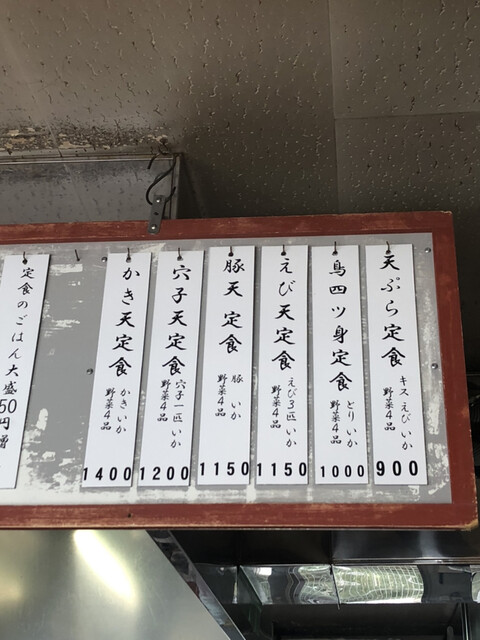 天ぷら定食
キス えび いか
野菜4品
900
鳥四ツ身定食
とり いか
野菜4品
1000
えび天定食
えび3匹 いか
野菜4品
1150
豚天定食
豚 いか
野菜4品
1150
穴子天定食
穴子一匹 いか
野菜4品
1200
かき天定食
かき いか
野菜4品
1400
定食のごはん大盛50円増